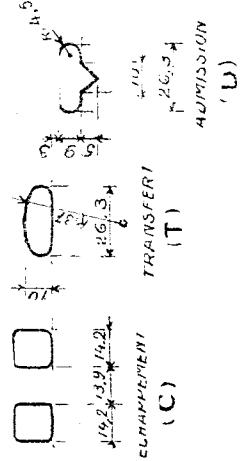 14,2 3,9 14,2
ECHAPPEMENT
(C)
10
32
26,3
TRANSFERT
(T)
R 4,5
3 9 5
10
26,3
ADMISSION
(D)